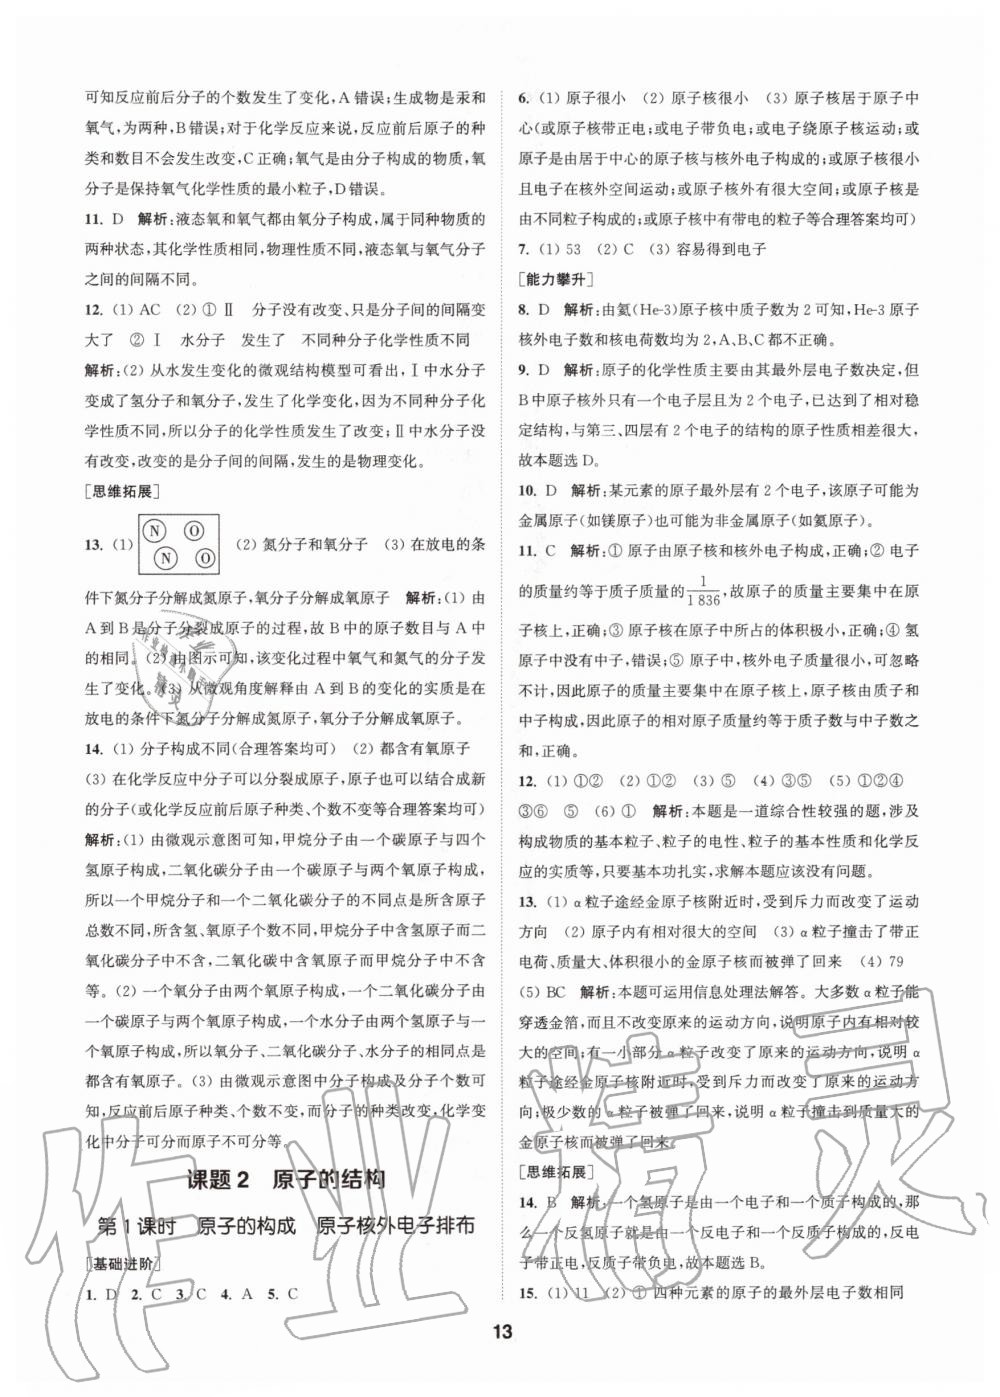 可知反应前后分子的个数发生了变化,A错误;生成物是汞和
氧气,为两种,B错误;对于化学反应来说,反应前后原子的种
类和数目不会发生改变,C正确;氧气是由分子构成的物质,氧
分子是保持氧气化学性质的最小粒子,D错误。
11. D 解析:液态氧和氧气都由氧分子构成,属于同种物质的
两种状态,其化学性质相同,物理性质不同,液态氧与氧气分子
之间的间隔不同。
12. (1) AC (2) ① Ⅱ 分子没有改变、只是分子间的间隔变
大了 ② Ⅰ 水分子 发生了 不同种分子化学性质不同
解析:(2) 从水发生变化的微观结构模型可看出,Ⅰ中水分子
变成了氢分子和氧分子,发生了化学变化,因为不同种分子化
学性质不同,所以分子的化学性质发生了改变;Ⅱ中水分子没
有改变,改变的是分子间的间隔,发生的是物理变化。
[思维拓展]
13. (1) N O N O (2) 氮分子和氧分子 (3) 在放电的条
件下氮分子分解成氮原子,氧分子分解成氧原子 解析:(1) 由
A到B是分子分裂成原子的过程,故B中的原子数目与A中
的相同。(2) 由图示可知,该变化过程中氧气和氮气的分子发
生了变化。(3) 从微观角度解释由A到B的变化的实质是在
放电的条件下氮分子分解成氮原子,氧分子分解成氧原子。
14. (1) 分子构成不同(合理答案均可) (2) 都含有氧原子
(3) 在化学反应中分子可以分裂成原子,原子也可以结合成新
的分子(或化学反应前后原子种类、个数不变等合理答案均可)
解析:(1) 由微观示意图可知,甲烷分子由一个碳原子与四个
氢原子构成,二氧化碳分子由一个碳原子与两个氧原子构成,
所以一个甲烷分子和一个二氧化碳分子的不同点是所含原子
总数不同,所含氢、氧原子个数不同,甲烷分子中含氢原子而二
氧化碳分子中不含,二氧化碳分子中含氧原子而甲烷分子不含
等。(2) 一个氧分子由两个氧原子构成,一个二氧化碳分子由
一个碳原子与两个氧原子构成,一个水分子由两个氢原子与一
个氧原子构成,所以氧分子、二氧化碳分子、水分子的相同点是
都含有氧原子。(3) 由微观示意图中分子构成及分子个数可
知,反应前后原子种类、个数不变,而分子的种类改变,化学变
化中分子可分而原子不可分等。
课题2 原子的结构
第1课时 原子的构成 原子核外电子排布
[基础进阶]
1. D 2. C 3. C 4. A 5. C
6. (1) 原子很小 (2) 原子核很小 (3) 原子核居于原子中
心(或原子核带正电;或电子带负电;或电子绕原子核运动;或
原子是由居于中心的原子核与核外电子构成的;或原子核很小
且电子在核外空间运动;或原子核外有很大空间;或原子核是
由不同粒子构成的;或原子核中有带电的粒子等合理答案均可)
7. (1) 53 (2) C (3) 容易得到电子
[能力攀升]
8. D 解析:由氦(He-3)原子核中质子数为2可知,He-3原子
核外电子数和核电荷数均为2,A、B、C都不正确。
9. D 解析:原子的化学性质主要由其最外层电子数决定,但
B中原子核外只有一个电子层且为2个电子,已达到了相对稳
定结构,与第三、四层有2个电子的结构的原子性质相差很大,
故本题选D。
10. D 解析:某元素的原子最外层有2个电子,该原子可能为
金属原子(如镁原子)也可能为非金属原子(如氦原子)。
11. C 解析:① 原子由原子核和核外电子构成,正确;② 电子
的质量约等于质子质量的1/1 836,故原子的质量主要集中在原
子核上,正确;③ 原子核在原子中所占的体积极小,正确;④ 氢
原子中没有中子,错误;⑤ 原子中,核外电子质量很小,可忽略
不计,因此原子的质量主要集中在原子核上,原子核由质子和
中子构成,因此原子的相对原子质量约等于质子数与中子数之
和,正确。
12. (1) ①② (2) ①② (3) ⑤ (4) ③⑤ (5) ①②④
③⑥ ⑤ (6) ① 解析:本题是一道综合性较强的题,涉及
构成物质的基本粒子、粒子的电性、粒子的基本性质和化学反
应的实质等,只要基本功扎实,求解本题应该没有问题。
13. (1) α粒子途经金原子核附近时,受到斥力而改变了运动
方向 (2) 原子内有相对很大的空间 (3) α粒子撞击了带正
电荷、质量大、体积很小的金原子核而被弹了回来 (4) 79
(5) BC 解析:本题可运用信息处理法解答。大多数α粒子能
穿透金箔,而且不改变原来的运动方向,说明原子内有相对很
大的空间;有一小部分α粒子改变了原来的运动方向,说明α
粒子途经金原子核附近时,受到斥力而改变了原来的运动方
向;极少数的α粒子被弹了回来,说明α粒子撞击到质量大的
金原子核而被弹了回来。
[思维拓展]
14. B 解析:一个氢原子是由一个电子和一个质子构成的,那
么一个反氢原子就由一个反电子和一个反质子构成的,反电
子带正电,反质子带负电,故本题选B。
15. (1) 11 (2) ① 四种元素的原子的最外层电子数相同
13
作业精灵